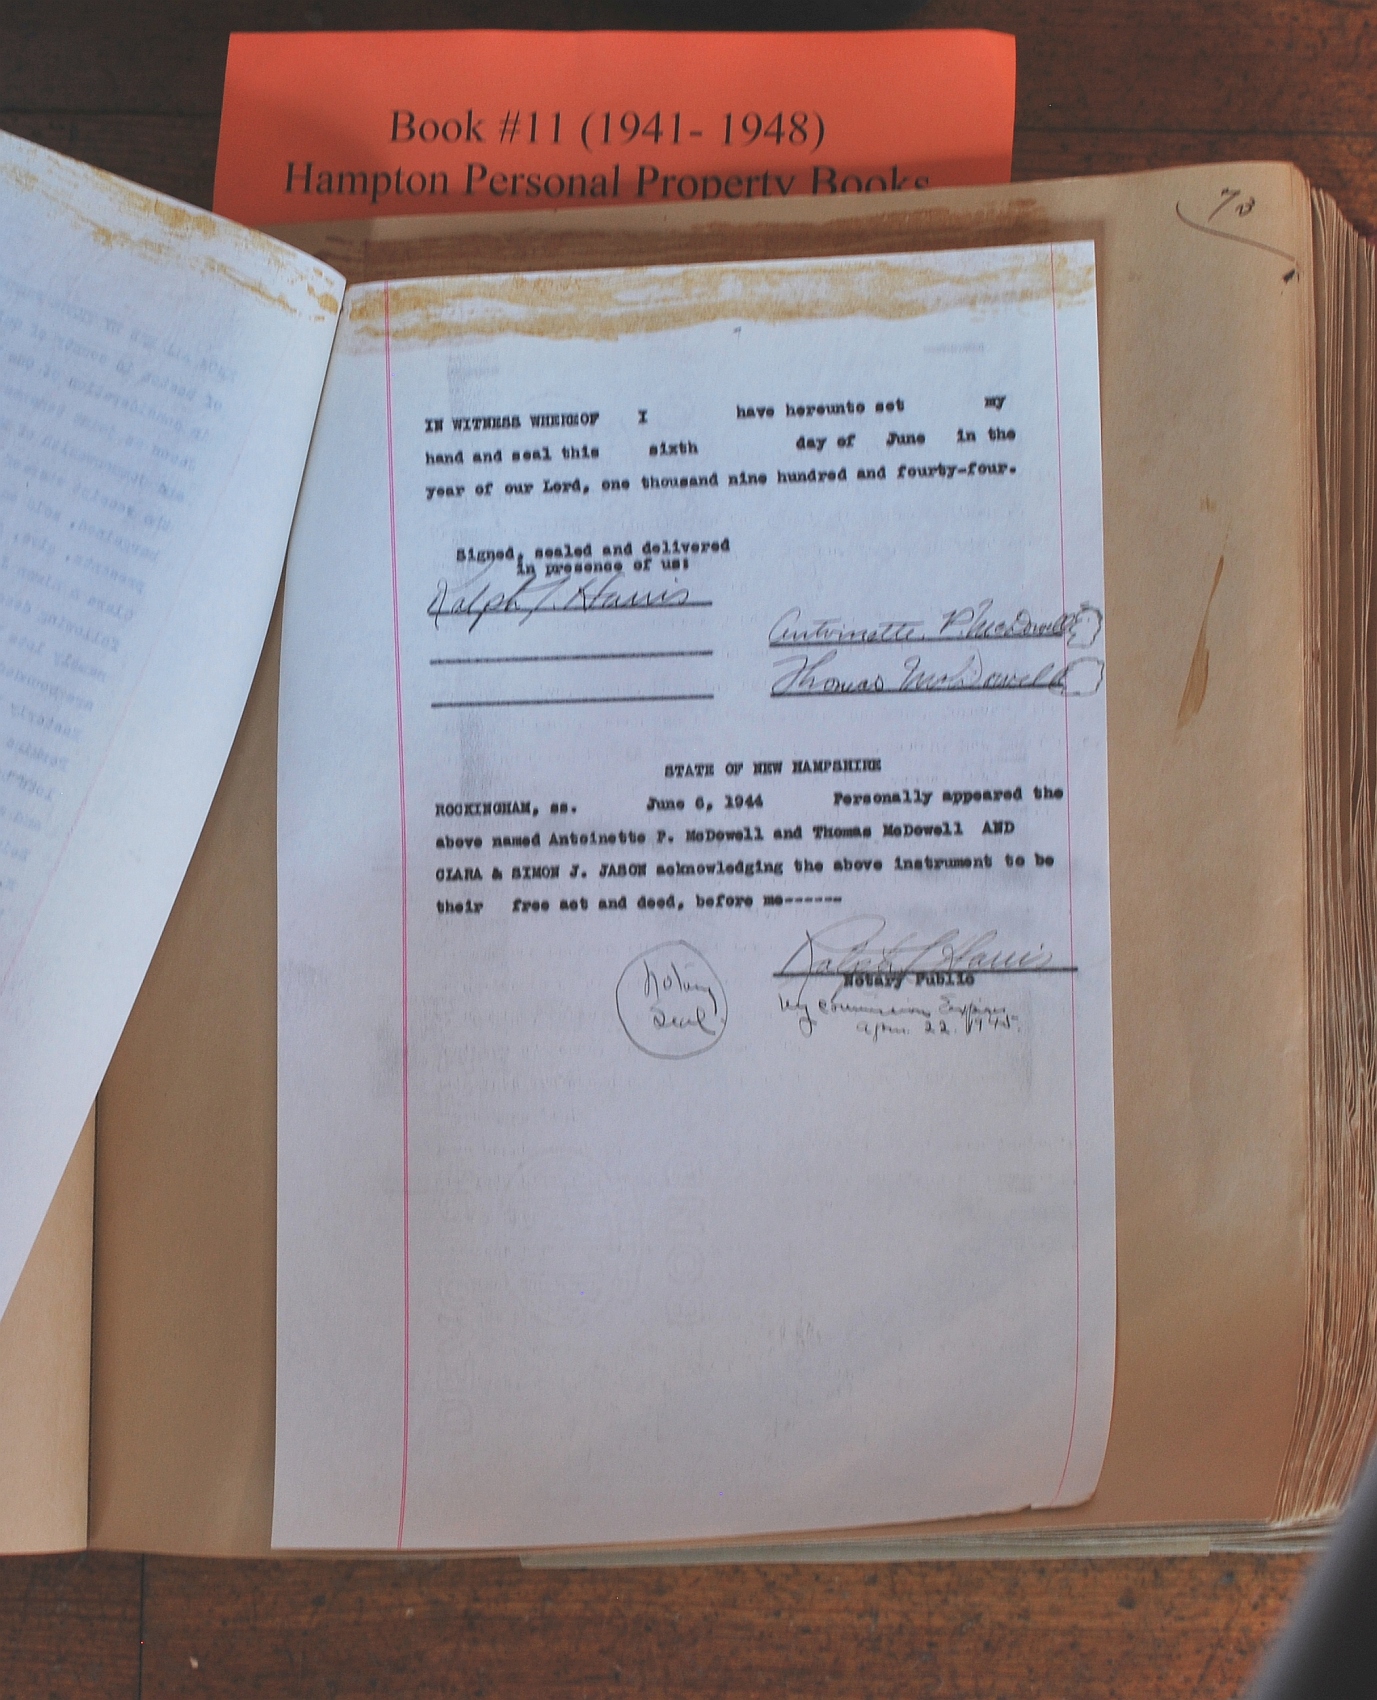 Book #11 (1941- 1948)
Hampton Personal Property Books
73
IN WITNESS WHEREOF I have hereunto set my
hand and seal this sixth day of June in the
year of our Lord, one thousand nine hundred and fourty-four.
Signed, sealed and delivered
in presence of us:
Ralph T. Harris
Antoinette P. McDowell
Thomas McDowell
STATE OF NEW HAMPSHIRE
ROCKINGHAM, ss. June 6, 1944 Personally appeared the
above named Antoinette P. McDowell and Thomas McDowell AND
CLARA & SIMON J. JASON acknowledging the above instrument to be
their free act and deed, before me------
Ralph T. Harris
Notary Public
Notary
Seal
My Commission Expires
April 22. 1945.